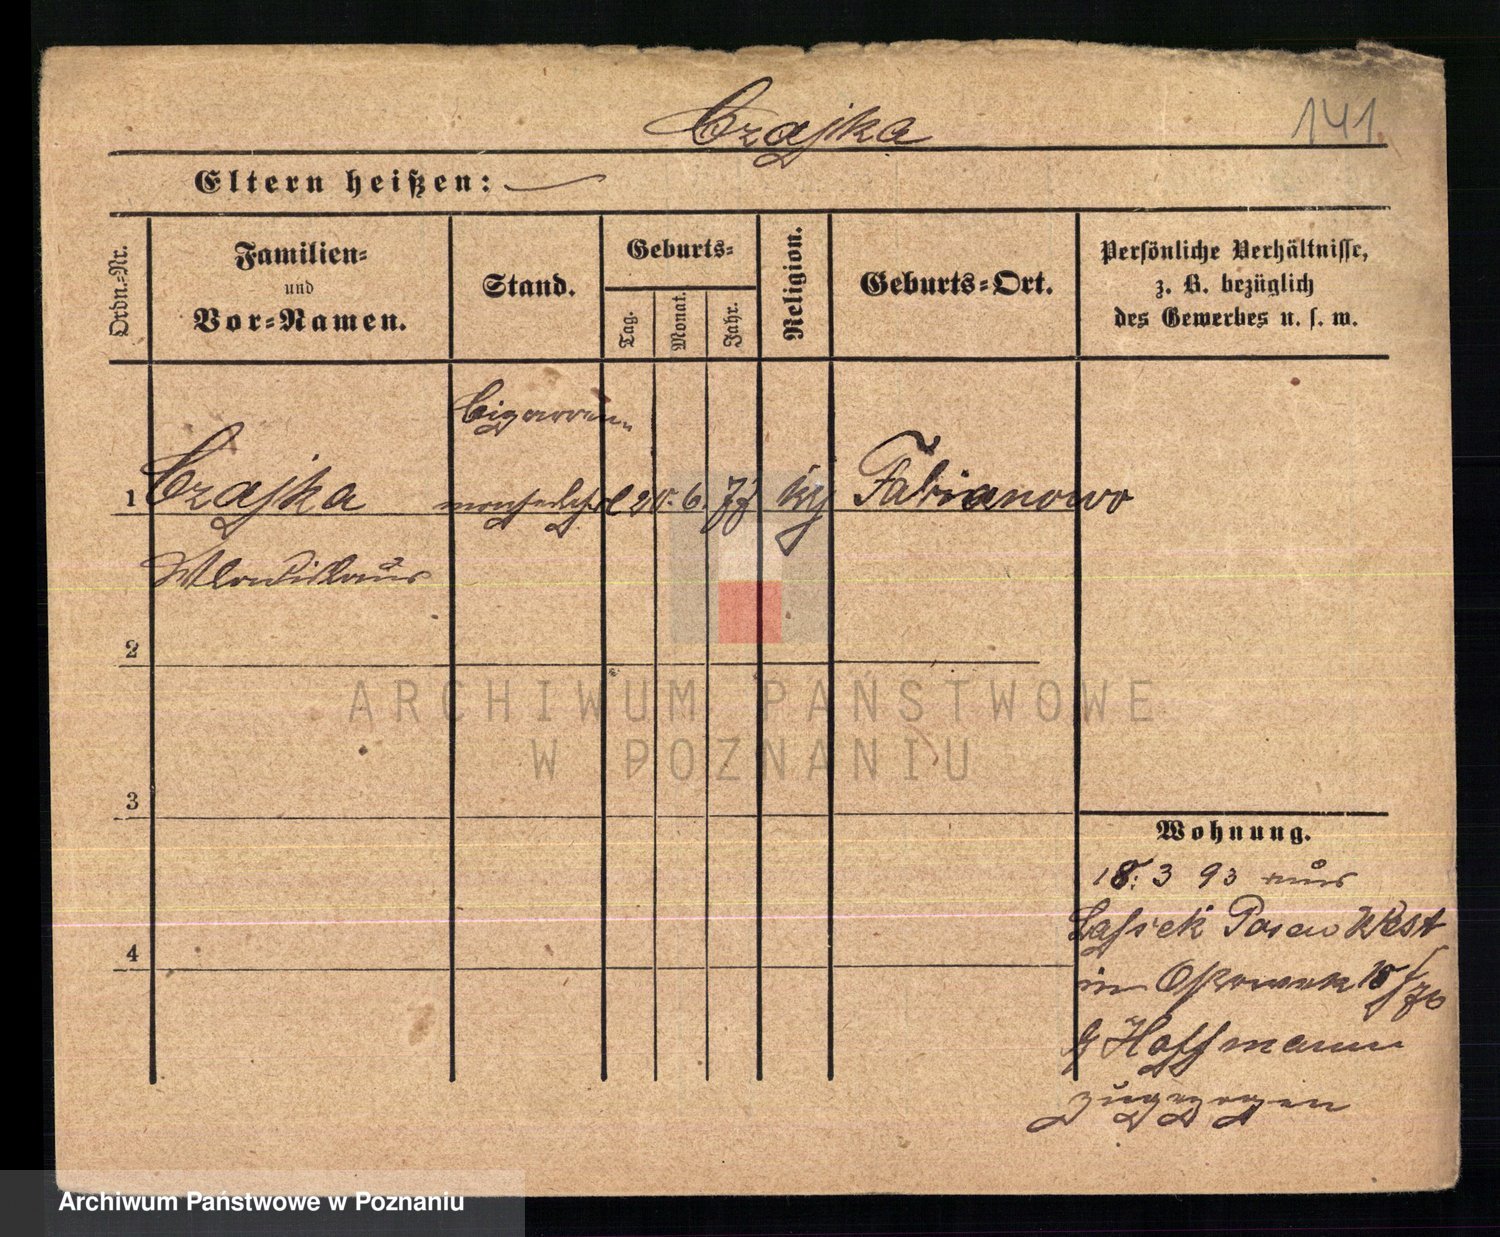 Czajka
141
Eltern heißen:
Ordn.-Nr.
Familien-
und
Vor-Namen.
Stand.
Geburts-
Tag.
Monat.
Jahr.
Religion.
Geburts-Ort.
Persönliche Verhältnisse,
z. B. bezüglich
des Gewerbes u. s. w.
Cigarren-
1 Czajka 6. 77 Fabianowo
Wladislaus
2
ARCHIWUM PAŃSTWOWE
W POZNANIU
3
Wohnung.
18. 3 93 aus
Lassek Posen West
4
in
Hoffmann
zugezogen
Archiwum Państwowe w Poznaniu